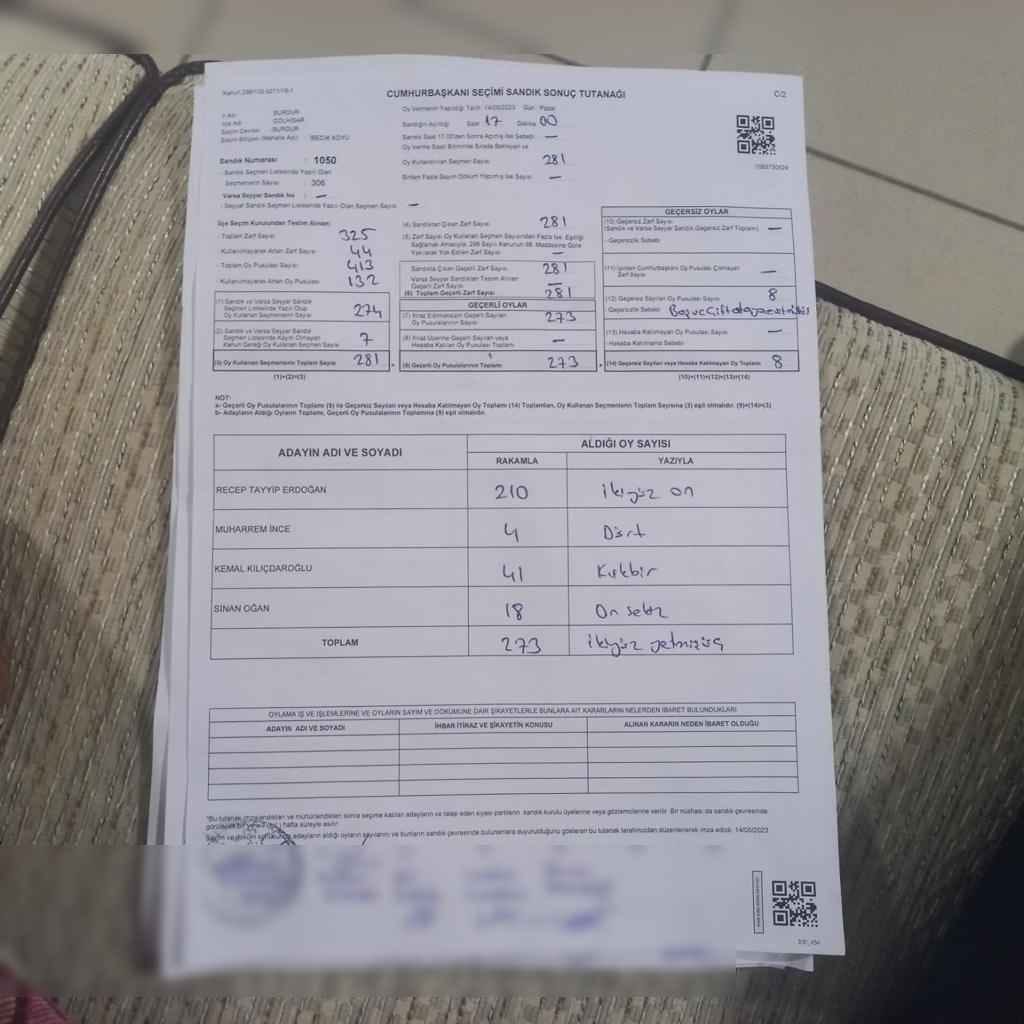 CUMHURBAŞKANI SEÇİMİ SANDIK SONUÇ TUTANAĞI
C/2
İl Adı : BURDUR
İlçe Adı : GÖLHİSAR
Seçim Çevresi : BURDUR
Seçim Bölgesi (Mahalle Adı) :
Oy Vermenin Yapıldığı Tarih: 14/05/2023 Gün: Pazar
Sandığın Açıldığı Saat 17 Dakika 00
Sandık Saat 17.00'den Sonra Açılmış İse Sebebi: —
Oy Verme Saati Bitiminde Sırada Bekleyen ve
Oy Kullandırılan Seçmen Sayısı: 281
Birden Fazla Sayım Döküm Yapılmış İse Sayısı: —
Sandık Numarası : 1050
- Sandık Seçmen Listesinde Yazılı Olan
Seçmenlerin Sayısı : 306
Varsa Seyyar Sandık No : —
- Seyyar Sandık Seçmen Listesinde Yazılı Olan Seçmen Sayısı : —
İlçe Seçim Kurulundan Teslim Alınan:
- Toplam Zarf Sayısı: 325
- Kullanılmayarak Artan Zarf Sayısı: 44
- Toplam Oy Pusulası Sayısı: 413
- Kullanılmayarak Artan Oy Pusulası: 132
(1) Sandık ve Varsa Seyyar Sandık
Seçmen Listesinde Yazılı Olup
Oy Kullanan Seçmenlerin Sayısı 274
(2) Sandık ve Varsa Seyyar Sandık
Seçmen Listesinde Kaydı Olmayan
Kanun Gereği Oy Kullanan Seçmen Sayısı 7
(3) Oy Kullanan Seçmenlerin Toplam Sayısı 281
(1)+(2)=(3)
(4) Sandıktan Çıkan Zarf Sayısı: 281
(5) Zarf Sayısı Oy Kullanan Seçmen Sayısından Fazla İse, Eşitliği
Sağlamak Amacıyla, 298 Sayılı Kanunun 98. Maddesine Göre
Yakılarak Yok Edilen Zarf Sayısı: —
Sandıkta Çıkan Geçerli Zarf Sayısı: 281
Varsa Seyyar Sandıktan Teslim Alınan
Geçerli Zarf Sayısı: —
(6) Toplam Geçerli Zarf Sayısı: 281
GEÇERLİ OYLAR
(7) İtiraz Edilmeksizin Geçerli Sayılan
Oy Pusulalarının Sayısı: 273
(8) İtiraz Üzerine Geçerli Sayılan veya
Hesaba Katılan Oy Pusulası Toplam: —
(9) Geçerli Oy Pusulalarının Toplamı: 273
GEÇERSİZ OYLAR
(10) Geçersiz Zarf Sayısı:
(Sandık ve Varsa Seyyar Sandık Geçersiz Zarf Toplamı) —
- Geçersizlik Sebebi:
(11) İçinden Cumhurbaşkanı Oy Pusulası Çıkmayan
Zarf Sayısı: —
(12) Geçersiz Sayılan Oy Pusulası Sayısı: 8
- Geçersizlik Sebebi:
(13) Hesaba Katılmayan Oy Pusulası Sayısı: —
- Hesaba Katılmama Sebebi:
(14) Geçersiz Sayılan veya Hesaba Katılmayan Oy Toplamı: 8
(10)+(11)+(12)+(13)=(14)
NOT:
a- Geçerli Oy Pusulalarının Toplamı (9) ile Geçersiz Sayılan veya Hesaba Katılmayan Oy Toplamı (14) Toplamları, Oy Kullanan Seçmenlerin Toplam Sayısına (3) eşit olmalıdır. (9)+(14)=(3)
b- Adayların Aldığı Oyların Toplamı, Geçerli Oy Pusulalarının Toplamına (9) eşit olmalıdır.
ADAYIN ADI VE SOYADI
ALDIĞI OY SAYISI
RAKAMLA YAZIYLA
RECEP TAYYİP ERDOĞAN 210 ikiyüz on
MUHARREM İNCE 4 Dört
KEMAL KILIÇDAROĞLU 41 Kırkbir
SİNAN OĞAN 18 On sekiz
TOPLAM 273 ikiyüz yetmişüç
OYLAMA İŞ VE İŞLEMLERİNE VE OYLARIN SAYIM VE DÖKÜMÜNE DAİR ŞİKAYETLERLE BUNLARA AİT KARARLARIN NELERDEN İBARET BULUNDUKLARI
ADAYIN ADI VE SOYADI İHBAR İTİRAZ VE ŞİKAYETİN KONUSU ALINAN KARARIN NEDEN İBARET OLDUĞU